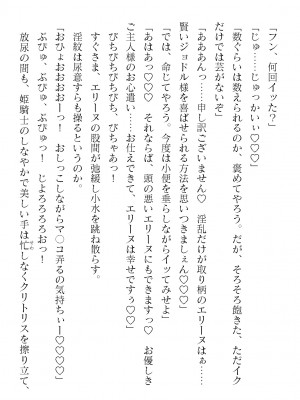 「フン、何回イッた？」
「じゅ……じゅっかいぃ♡♡♡」
「数ぐらいは数えられるのか、褒めてやろう。だが、そろそろ飽きた、ただイク
だけでは芸がないぞ」
「あああんっ……申し訳ございません♡　淫乱だけが取り柄のエリーヌはぁ……
賢いジョドル様を喜ばせられる方法を思いつきましぇん♡♡♡」
「では、命じてやろう、今度は小便を垂らしながらイッてみせよ」
「あはあっ♡♡♡　それならば、頭の悪いエリーヌにもできますっ♡　お優しき
ご主人様のお心遣い……お仕えできて、エリーヌは幸せですぅ♡♡」
ぴちぴちぴちち、ぴちゃあっ！
すぐさま、エリーヌの股間が弛緩し小水を跳ね散らす。
淫紋は尿意すらも操るというのか。
「おひょおおおおーっ！　おしっこしながらマ〇コ弄るの気持ちぃー♡♡♡」
ぷぴゅ、ぷぴゅーっ！　じょろろろろおっ！
放尿の間も、姫騎士のしなやかで美しい手は忙しなくクリトリスを擦り立て、